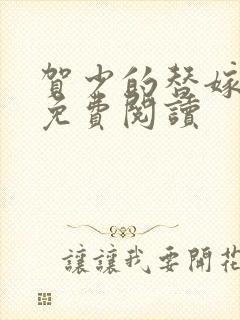 賀少的替嫁
免費閱讀
讓讓我要開花